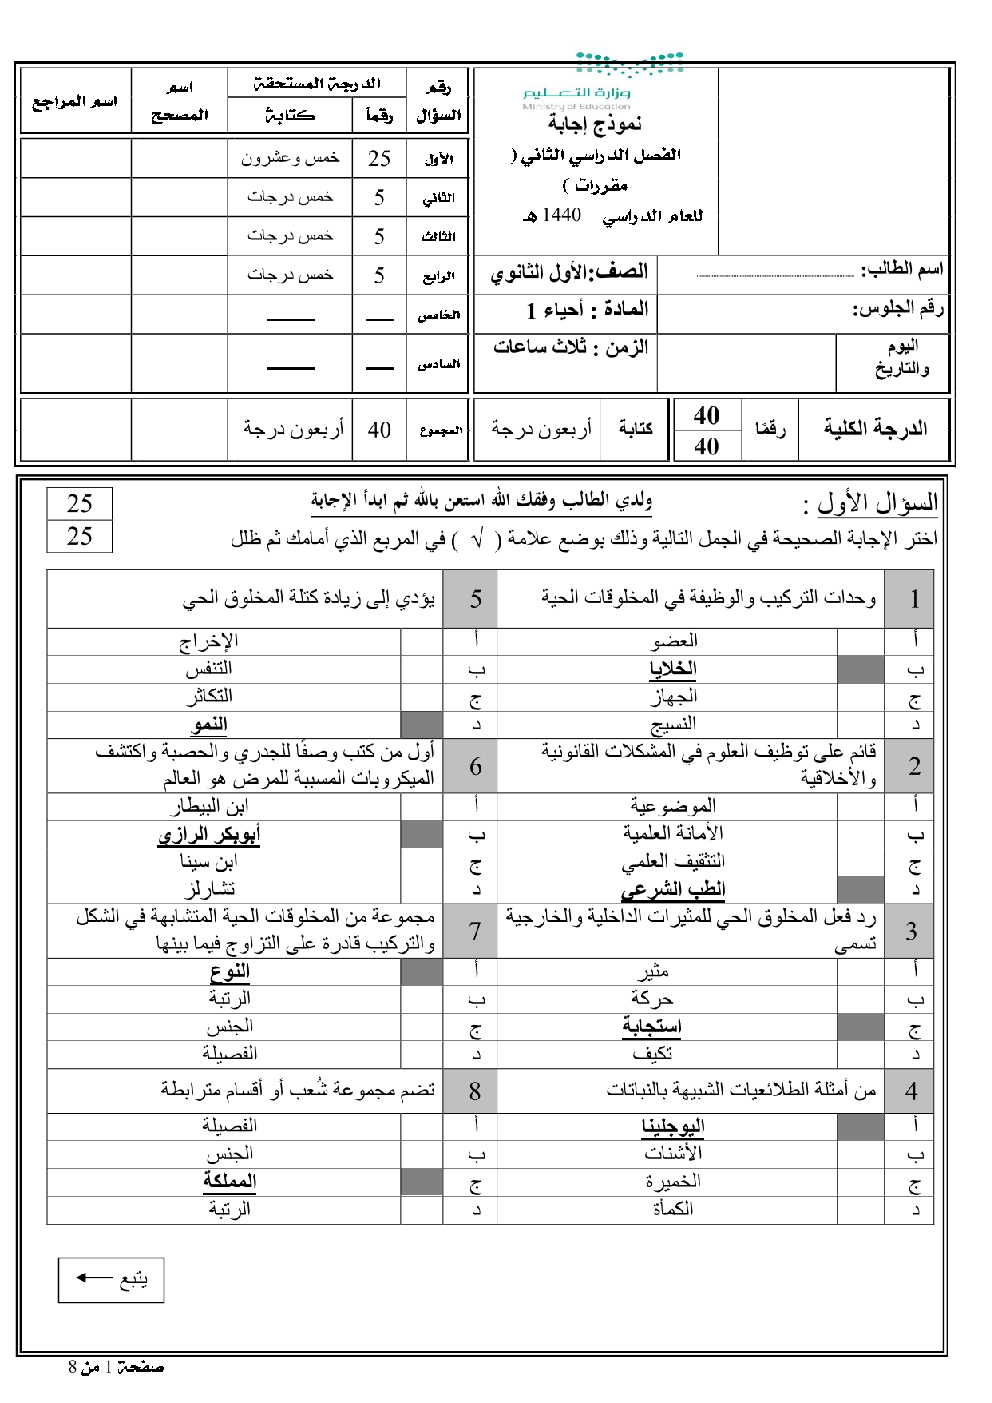 وزارة التعليم
Ministry of Education
نموذج إجابة
الفصل الدراسي الثاني (
مقررات )
للعام الدراسي 1440 هـ
اسم الطالب: ............................................ الصف:الأول الثانوي
رقم الجلوس: المادة : أحياء 1
اليوم والتاريخ الزمن : ثلاث ساعات
رقم السؤال الدرجة المستحقة اسم المصحح اسم المراجع
رقماً كتابة
الأول 25 خمس وعشرون
الثاني 5 خمس درجات
الثالث 5 خمس درجات
الرابع 5 خمس درجات
الخامس ___ _____
السادس ___ _____
الدرجة الكلية رقمًا 40 40 كتابة أربعون درجة المجموع 40 أربعون درجة
السؤال الأول : ولدي الطالب وفقك الله استعن بالله ثم ابدأ الإجابة 25
اختر الإجابة الصحيحة في الجمل التالية وذلك بوضع علامة ( √ ) في المربع الذي أمامك ثم ظلل 25
1 وحدات التركيب والوظيفة في المخلوقات الحية
أ العضو
ب الخلايا
ج الجهاز
د النسيج
2 قائم على توظيف العلوم في المشكلات القانونية
والأخلاقية
أ الموضوعية
ب الأمانة العلمية
ج التثقيف العلمي
د الطب الشرعي
3 رد فعل المخلوق الحي للمثيرات الداخلية والخارجية
تسمى
أ مثير
ب حركة
ج استجابة
د تكيف
4 من أمثلة الطلائعيات الشبيهة بالنباتات
أ اليوجلينا
ب الأشنات
ج الخميرة
د الكمأة
5 يؤدي إلى زيادة كتلة المخلوق الحي
أ الإخراج
ب التنفس
ج التكاثر
د النمو
6 أول من كتب وصفًا للجدري والحصبة واكتشف
الميكروبات المسببة للمرض هو العالم
أ ابن البيطار
ب أبوبكر الرازي
ج ابن سينا
د تشارلز
7 مجموعة من المخلوقات الحية المتشابهة في الشكل
والتركيب قادرة على التزاوج فيما بينها
أ النوع
ب الرتبة
ج الجنس
د الفصيلة
8 تضم مجموعة شُعب أو أقسام مترابطة
أ الفصيلة
ب الجنس
ج المملكة
د الرتبة
يتبع ←
صفحة 1 من 8